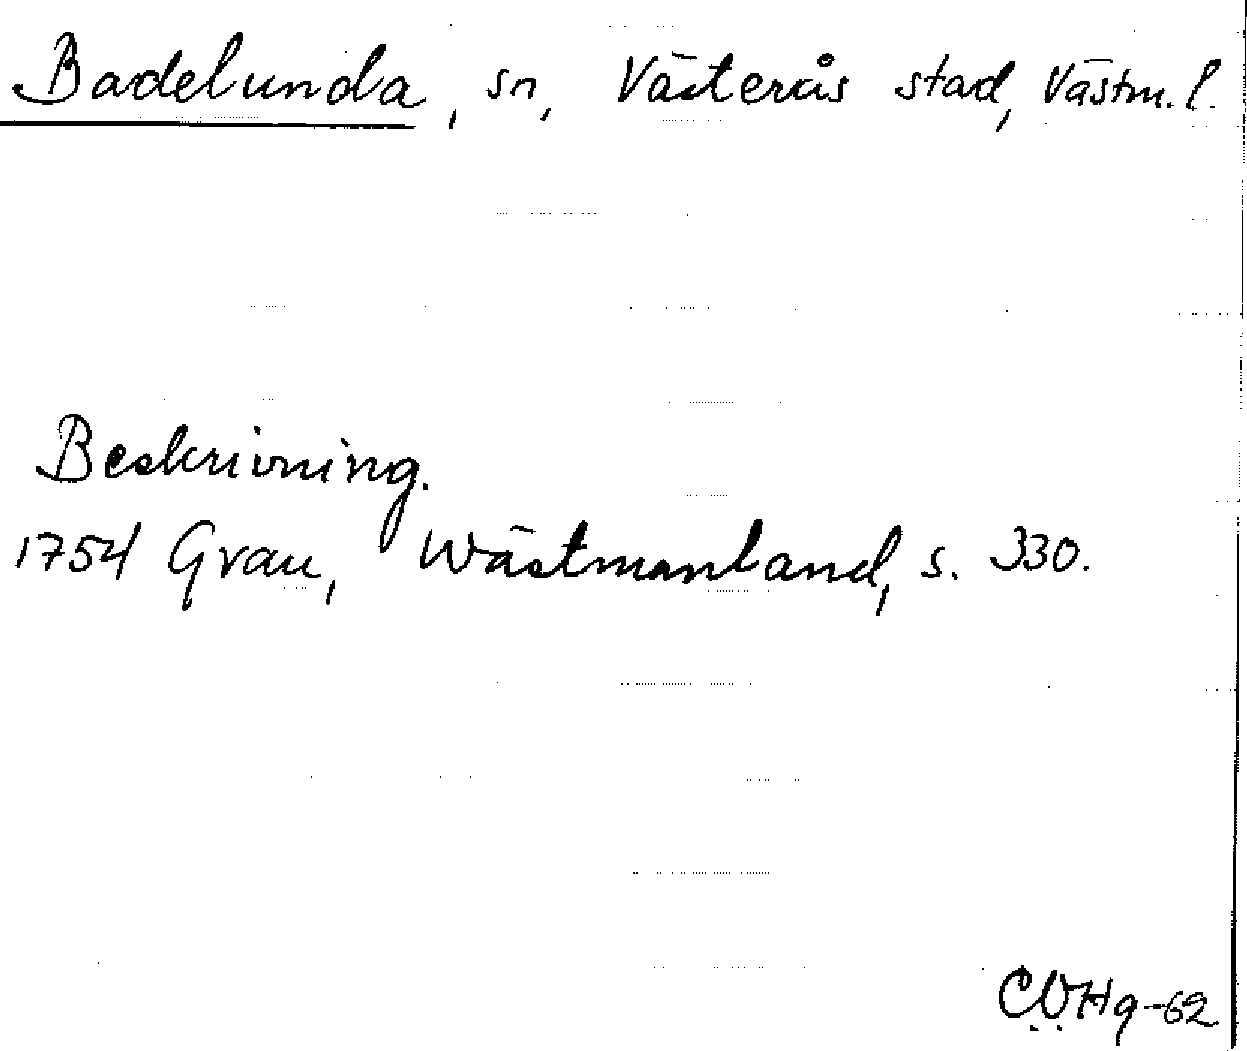 Badelunda, sn, Västerås stad, Västm. l.
Beskrivning.
1754 Grau, Wästmanland, s. 330.
CVHg-62